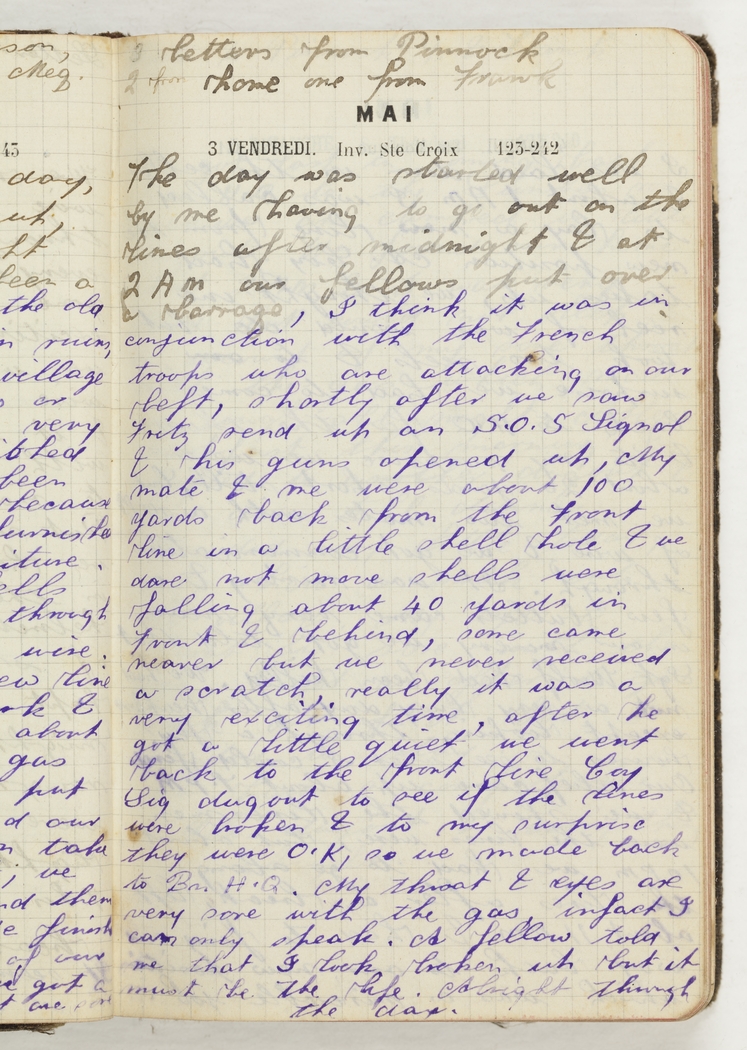 son,
Meg.
43
day,
up,
been a
the old
n ruin,
village
or
very
been
because
furniture
iture.
ells
through
wire.
ew line
rk &
about
gas
put
d our
n take
; we
nd them
e finish
of our
e got a
t are
3 letters from Pinnock
2 from home one from Frank
MAI
3 VENDREDI. Inv. Ste Croix 123-242
The day was started well
by me having to go out on the
lines after midnight & at
2 Am our fellows put over
a barrage, I think it was in
conjunction with the French
troops who are attacking on our
left, shortly after we saw
Fritz send up an S.O.S Signal
& his guns opened up, My
mate & me were about 100
yards back from the front
line in a little shell hole & we
dare not move shells were
falling about 40 yards in
front & behind, some came
nearer but we never received
a scratch, really it was a
very exciting time, after he
got a little quiet we went
back to the front line Coy
Sig dugout to see if the lines
were broken & to my surprise
they were O.K, so we made back
to Bn. H.Q. My throat & eyes are
very sore with the gas, infact I
can only speak. A fellow told
me that I look broken up but it
must be the life. Alright through
the day.